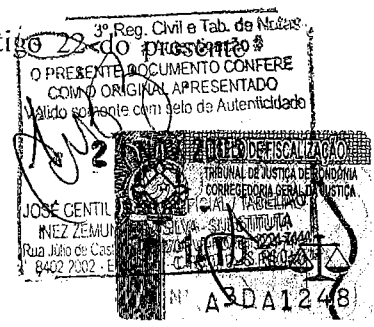 3º Reg. Civil e Tab. de Notas
tigo 22 do presente
O PRESENTE DOCUMENTO CONFERE
COM O ORIGINAL APRESENTADO
Válido somente com selo de Autenticidade
2
DE FISCALIZAÇÃO
TRIBUNAL DE JUSTIÇA DE RONDÔNIA
CORREGEDORIA GERAL DA JUSTIÇA
JOSÉ GENTIL
TABELIÃO
INEZ ZEMUN
SILVA - SUBSTITUTA
Rua Júlio de Cas
8402 2002 - E
Nº A3DA1248